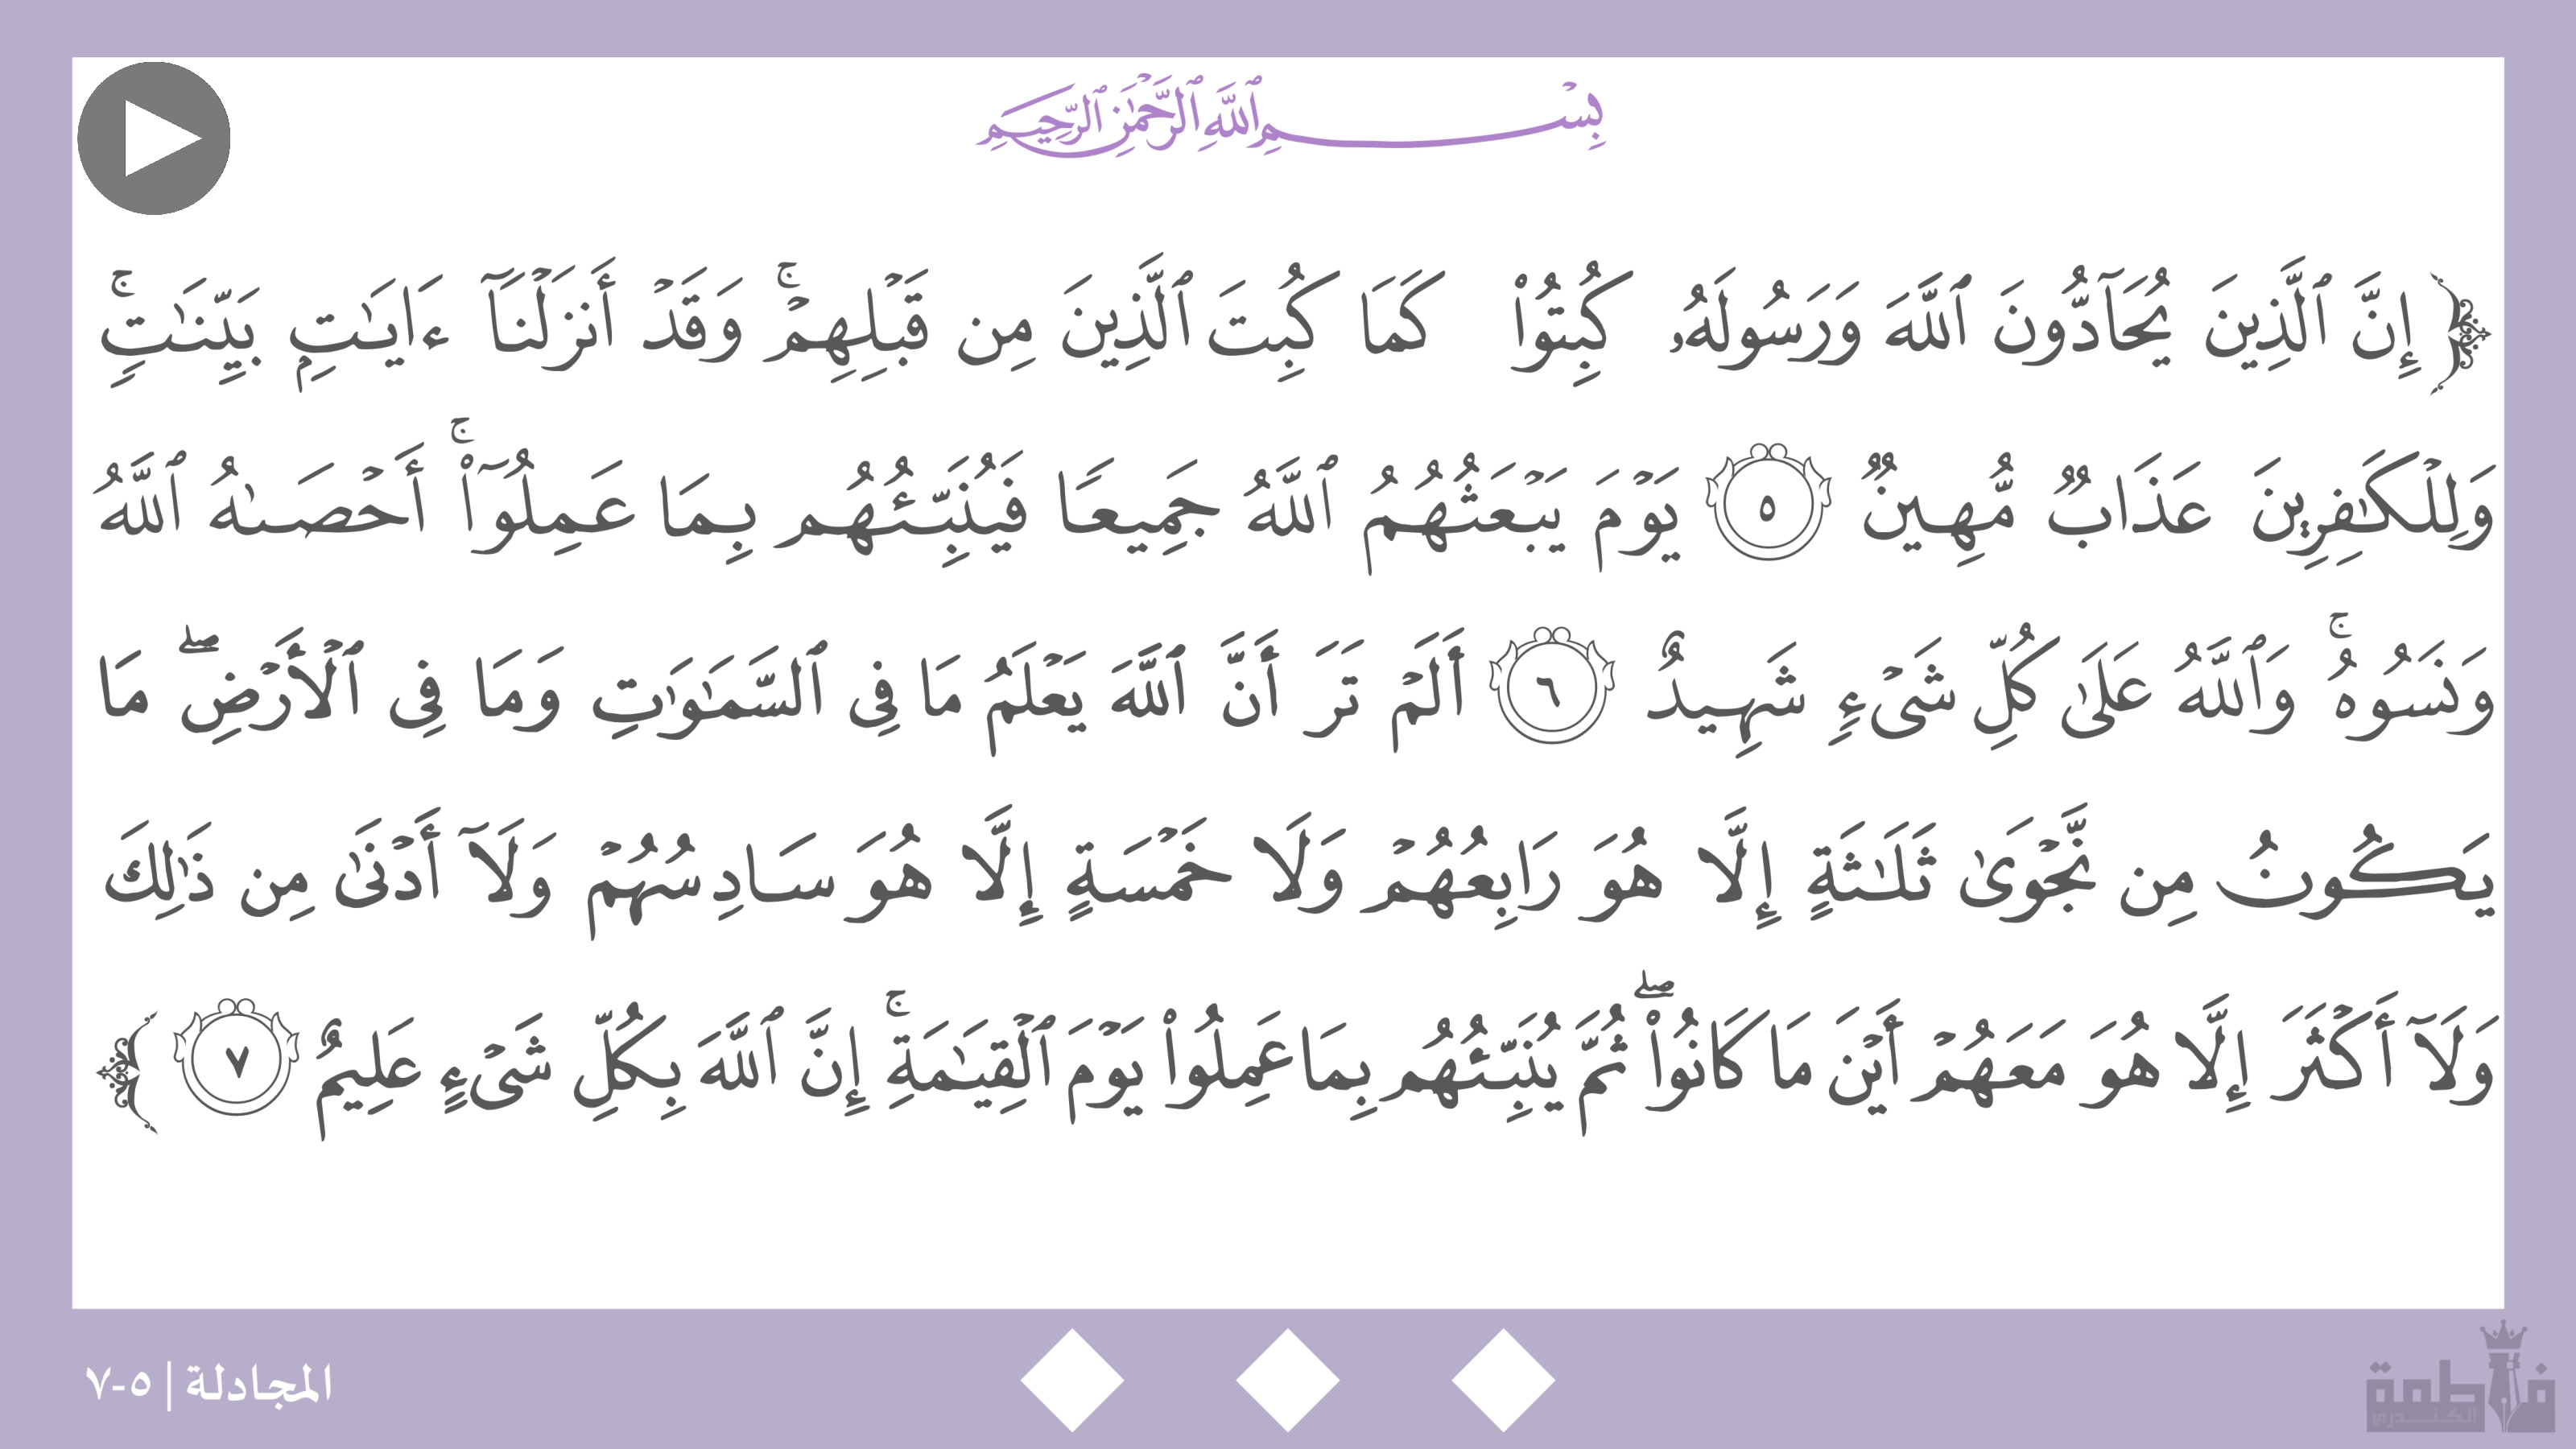 بِسْمِ ٱللَّهِ ٱلرَّحْمَٰنِ ٱلرَّحِيمِ
﴿ إِنَّ ٱلَّذِينَ يُحَآدُّونَ ٱللَّهَ وَرَسُولَهُۥ كُبِتُوا۟ كَمَا كُبِتَ ٱلَّذِينَ مِن قَبْلِهِمْ ۚ وَقَدْ أَنزَلْنَآ ءَايَـٰتٍۭ بَيِّنَـٰتٍ ۚ
وَلِلْكَـٰفِرِينَ عَذَابٌ مُّهِينٌ ٥ يَوْمَ يَبْعَثُهُمُ ٱللَّهُ جَمِيعًا فَيُنَبِّئُهُم بِمَا عَمِلُوٓا۟ ۚ أَحْصَىٰهُ ٱللَّهُ
وَنَسُوهُ ۚ وَٱللَّهُ عَلَىٰ كُلِّ شَىْءٍ شَهِيدٌ ٦ أَلَمْ تَرَ أَنَّ ٱللَّهَ يَعْلَمُ مَا فِى ٱلسَّمَـٰوَٰتِ وَمَا فِى ٱلْأَرْضِ ۖ مَا
يَكُونُ مِن نَّجْوَىٰ ثَلَـٰثَةٍ إِلَّا هُوَ رَابِعُهُمْ وَلَا خَمْسَةٍ إِلَّا هُوَ سَادِسُهُمْ وَلَآ أَدْنَىٰ مِن ذَٰلِكَ
وَلَآ أَكْثَرَ إِلَّا هُوَ مَعَهُمْ أَيْنَ مَا كَانُوا۟ ۖ ثُمَّ يُنَبِّئُهُم بِمَا عَمِلُوا۟ يَوْمَ ٱلْقِيَـٰمَةِ ۚ إِنَّ ٱللَّهَ بِكُلِّ شَىْءٍ عَلِيمٌ ٧ ﴾
المجادلة | ٥-٧
فاطمة
الكندري